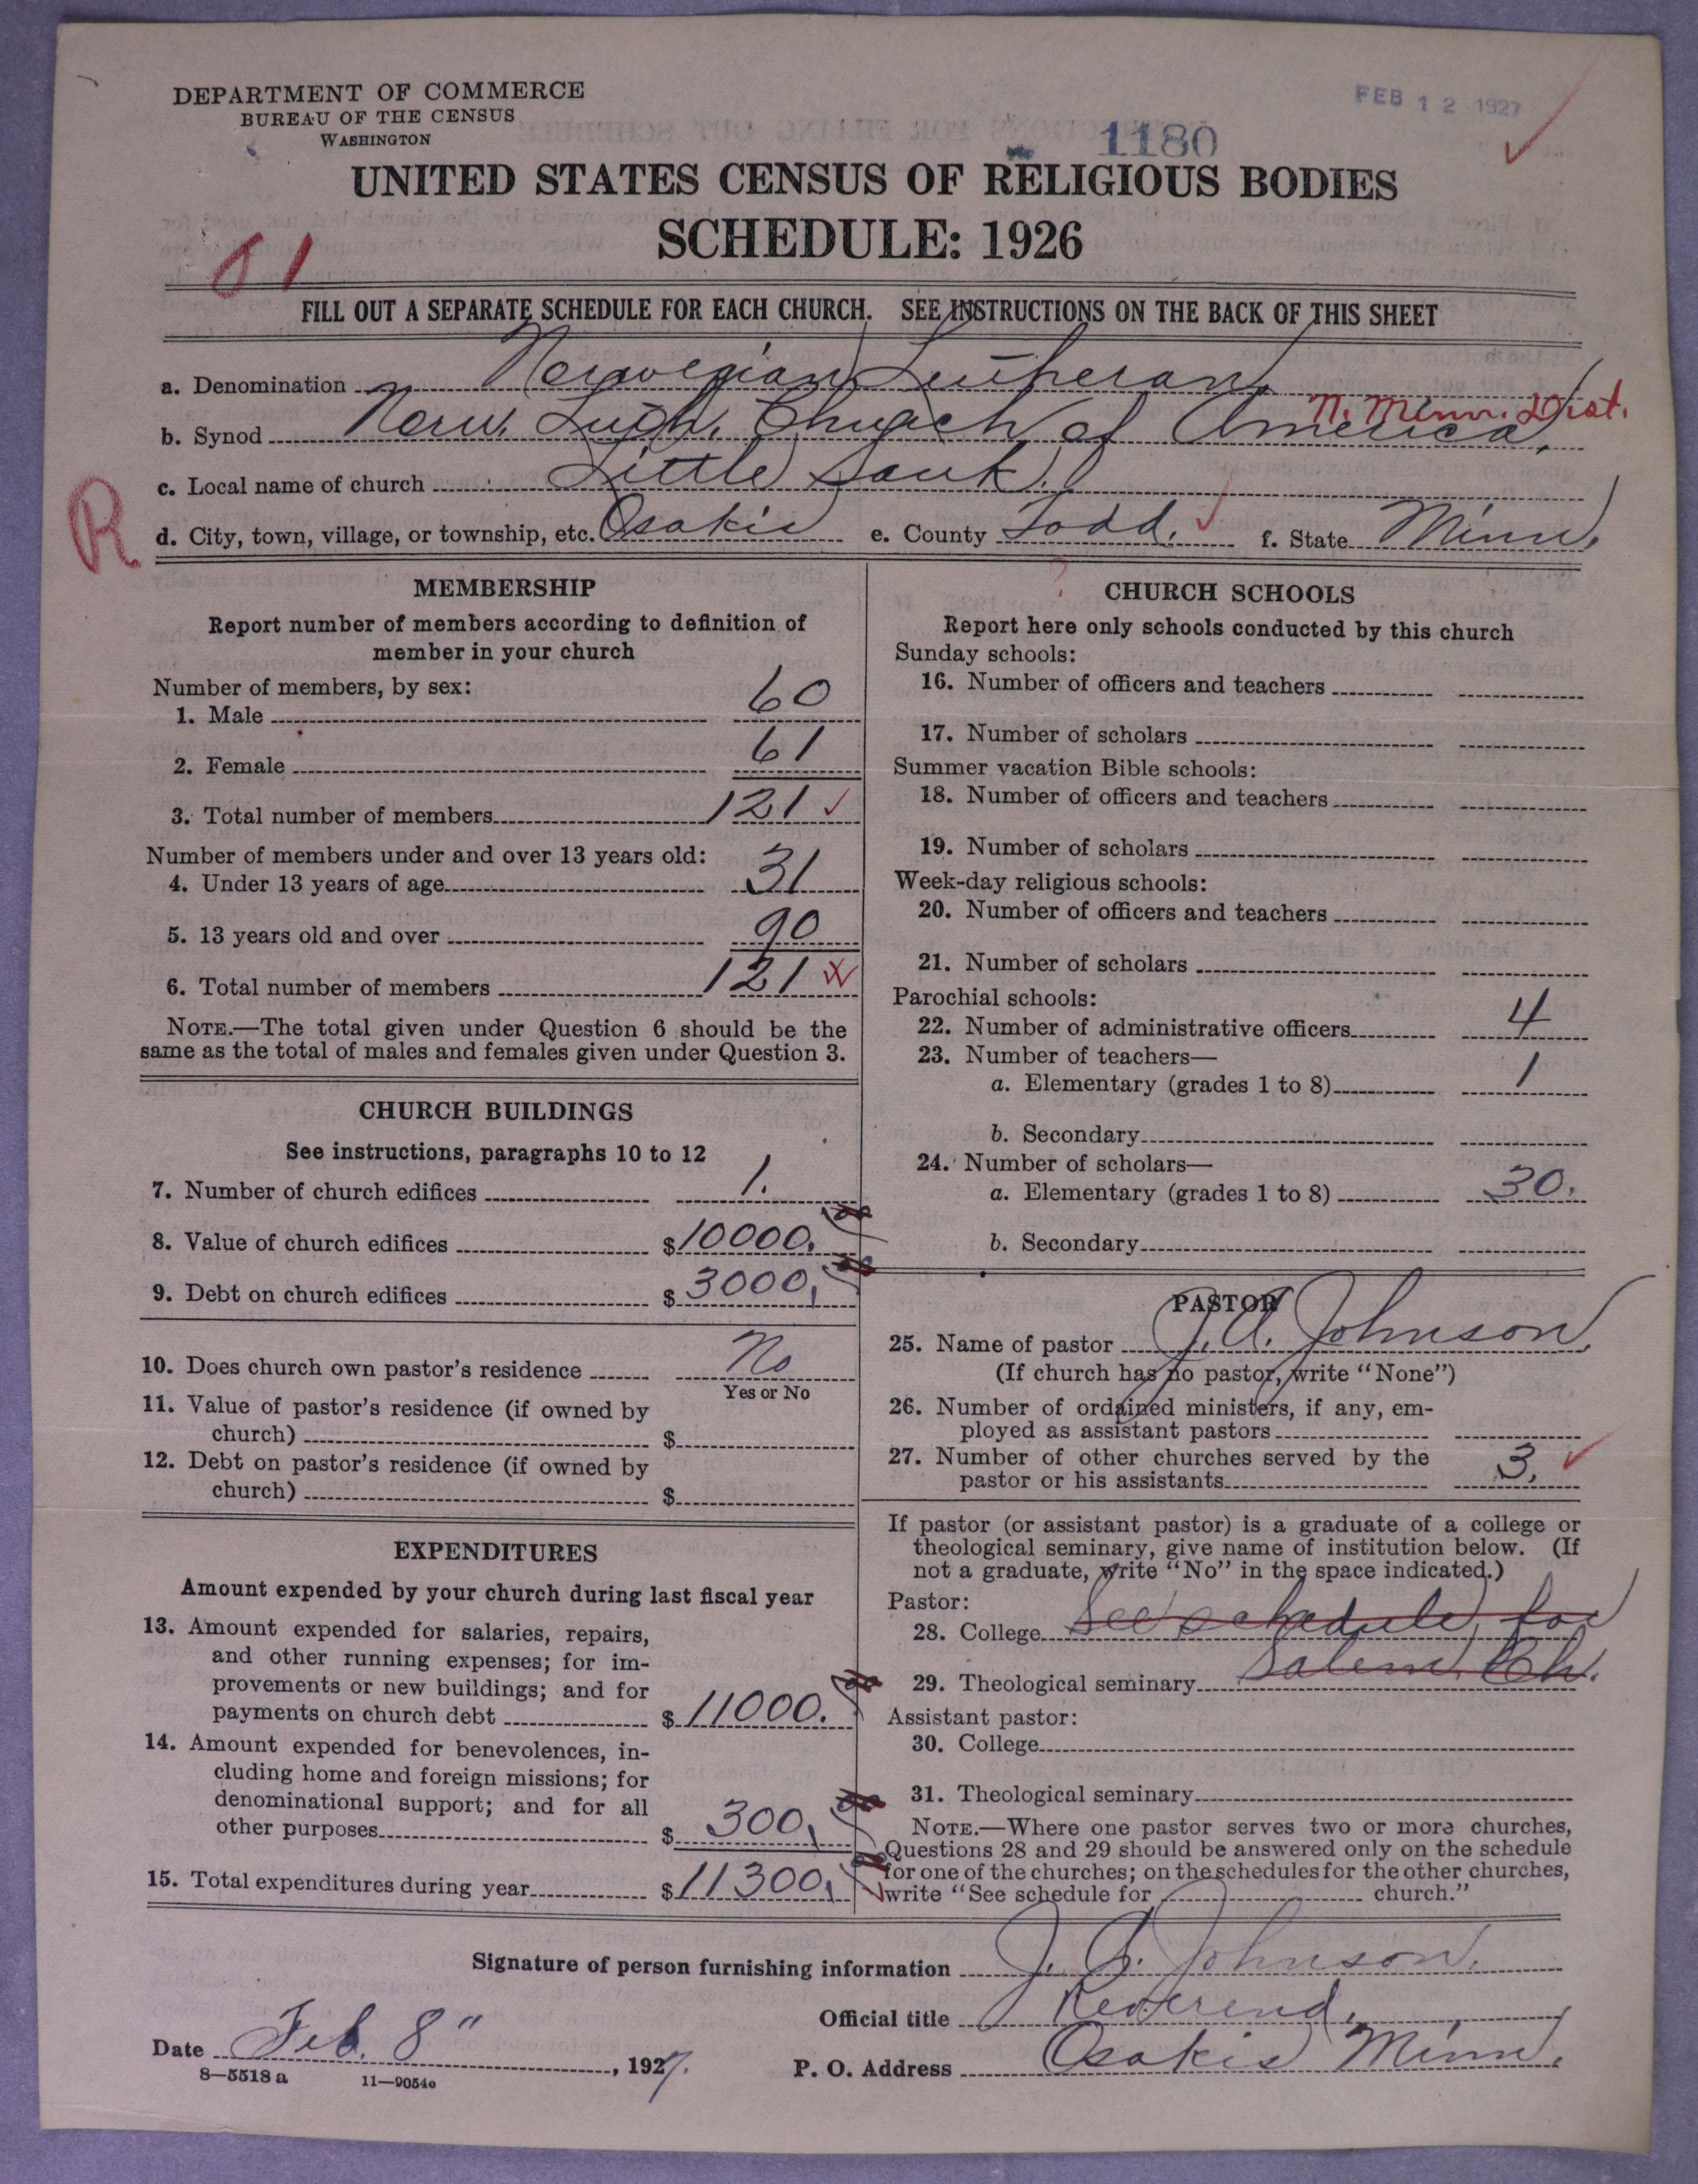 DEPARTMENT OF COMMERCE
BUREAU OF THE CENSUS
WASHINGTON
FEB 12 1927
1180
UNITED STATES CENSUS OF RELIGIOUS BODIES
SCHEDULE: 1926
61
FILL OUT A SEPARATE SCHEDULE FOR EACH CHURCH. SEE INSTRUCTIONS ON THE BACK OF THIS SHEET
a. Denomination Norwegian Lutheran
N. Minn. Dist.
b. Synod Norw. Luth. Church of America.
c. Local name of church Little Sauk.
R
d. City, town, village, or township, etc. Osakis e. County Todd. f. State Minn.
MEMBERSHIP
Report number of members according to definition of
member in your church
Number of members, by sex:
1. Male 60
2. Female 61
3. Total number of members 121
Number of members under and over 13 years old:
4. Under 13 years of age 31
5. 13 years old and over 90
6. Total number of members 121
NOTE.—The total given under Question 6 should be the
same as the total of males and females given under Question 3.
CHURCH BUILDINGS
See instructions, paragraphs 10 to 12
7. Number of church edifices 1.
8. Value of church edifices $10000.
9. Debt on church edifices $3000.
10. Does church own pastor's residence No
Yes or No
11. Value of pastor's residence (if owned by
church) $
12. Debt on pastor's residence (if owned by
church) $
EXPENDITURES
Amount expended by your church during last fiscal year
13. Amount expended for salaries, repairs,
and other running expenses; for im-
provements or new buildings; and for
payments on church debt $11000.
14. Amount expended for benevolences, in-
cluding home and foreign missions; for
denominational support; and for all
other purposes $300.
15. Total expenditures during year $11300.
CHURCH SCHOOLS
Report here only schools conducted by this church
Sunday schools:
16. Number of officers and teachers
17. Number of scholars
Summer vacation Bible schools:
18. Number of officers and teachers
19. Number of scholars
Week-day religious schools:
20. Number of officers and teachers
21. Number of scholars
Parochial schools:
22. Number of administrative officers 4
23. Number of teachers—
a. Elementary (grades 1 to 8) 1
b. Secondary
24. Number of scholars—
a. Elementary (grades 1 to 8) 30.
b. Secondary
PASTOR
25. Name of pastor J. A. Johnson
(If church has no pastor, write "None")
26. Number of ordained ministers, if any, em-
ployed as assistant pastors
27. Number of other churches served by the
pastor or his assistants 3.
If pastor (or assistant pastor) is a graduate of a college or
theological seminary, give name of institution below. (If
not a graduate, write "No" in the space indicated.)
Pastor:
28. College See schedule for
29. Theological seminary Salem Ch.
Assistant pastor:
30. College
31. Theological seminary
NOTE.—Where one pastor serves two or more churches,
Questions 28 and 29 should be answered only on the schedule
for one of the churches; on the schedules for the other churches,
write "See schedule for church."
Signature of person furnishing information J. A. Johnson.
Official title Reverend.
Date Feb. 8", 1927. P. O. Address Osakis Minn.
8—5518 a 11—9054e